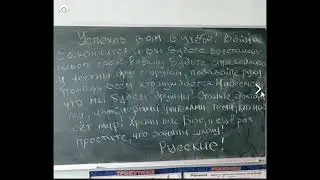 Успехов вам в учёбе! Война
закончится и вы будете восстанавли
вать свою Родину. Будьте справедливы
и честны друг с другом, подавайте руку
помощи всем кто нуждается. Надеемся
что мы будем дружны! Станьте докто
рами, учителями, теми, кто не
сёт мир! Храни вас Бог, и ещё раз
простите, что заняли школу!
Русские!